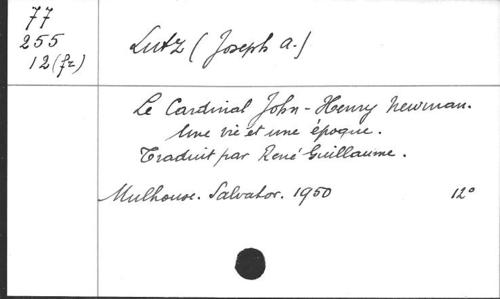 77
255
12 (fr)
Lutz (Joseph A.)
Le Cardinal John-Henry Newman.
Une vie et une époque.
Traduit par René Guillaume.
Mulhouse. Salvator. 1950 12°